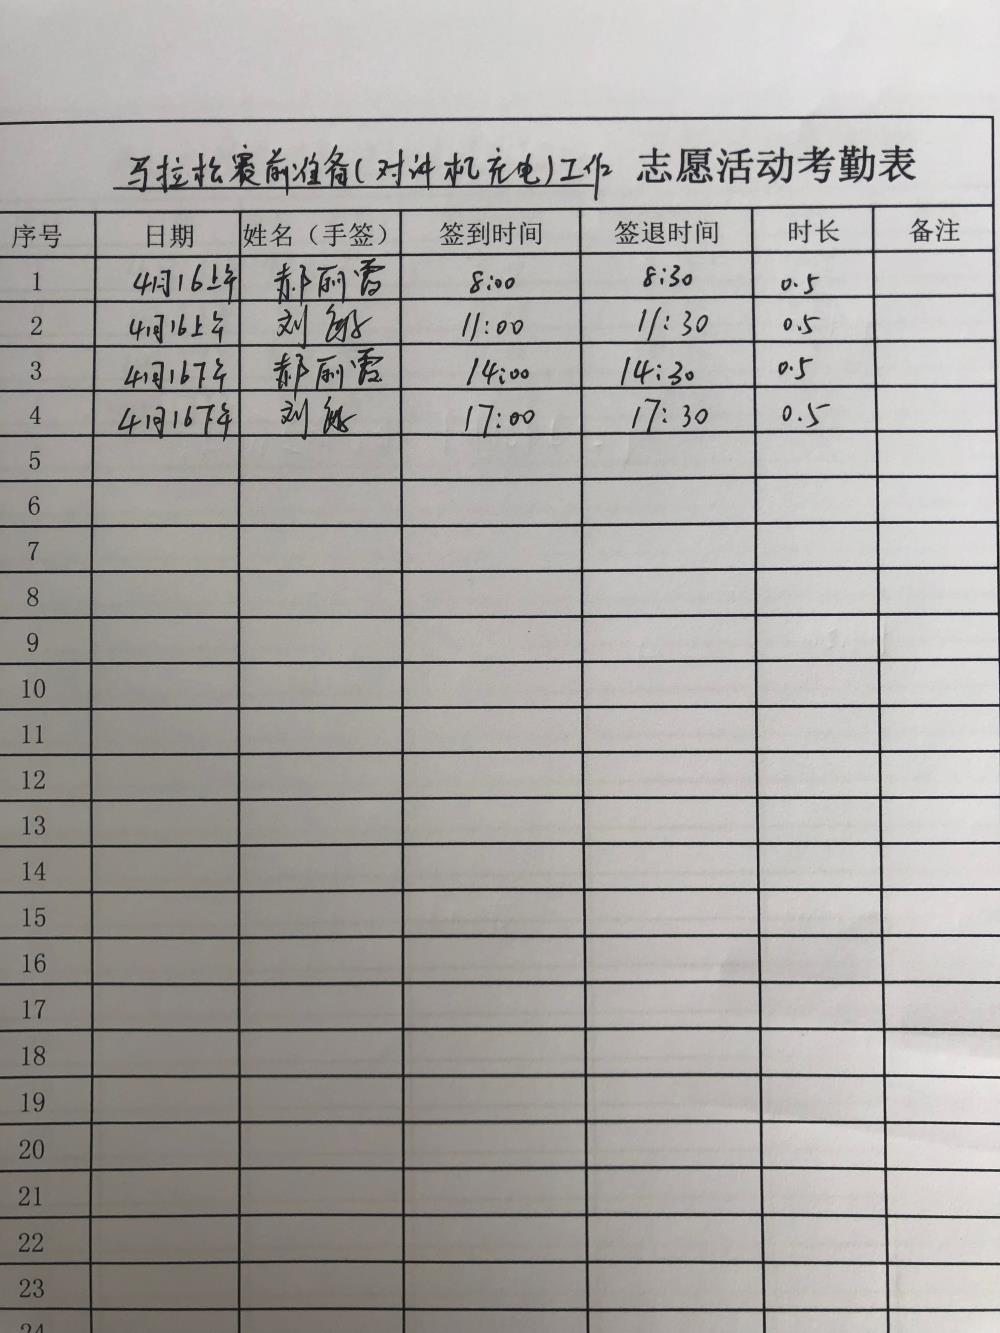 马拉松赛前准备(对讲机充电)工作 志愿活动考勤表
序号 日期 姓名（手签） 签到时间 签退时间 时长 备注
1 4月16上午 郝丽霞 8:00 8:30 0.5
2 4月16上午 刘 11:00 11:30 0.5
3 4月16下午 郝丽霞 14:00 14:30 0.5
4 4月16下午 刘 17:00 17:30 0.5
5
6
7
8
9
10
11
12
13
14
15
16
17
18
19
20
21
22
23
24